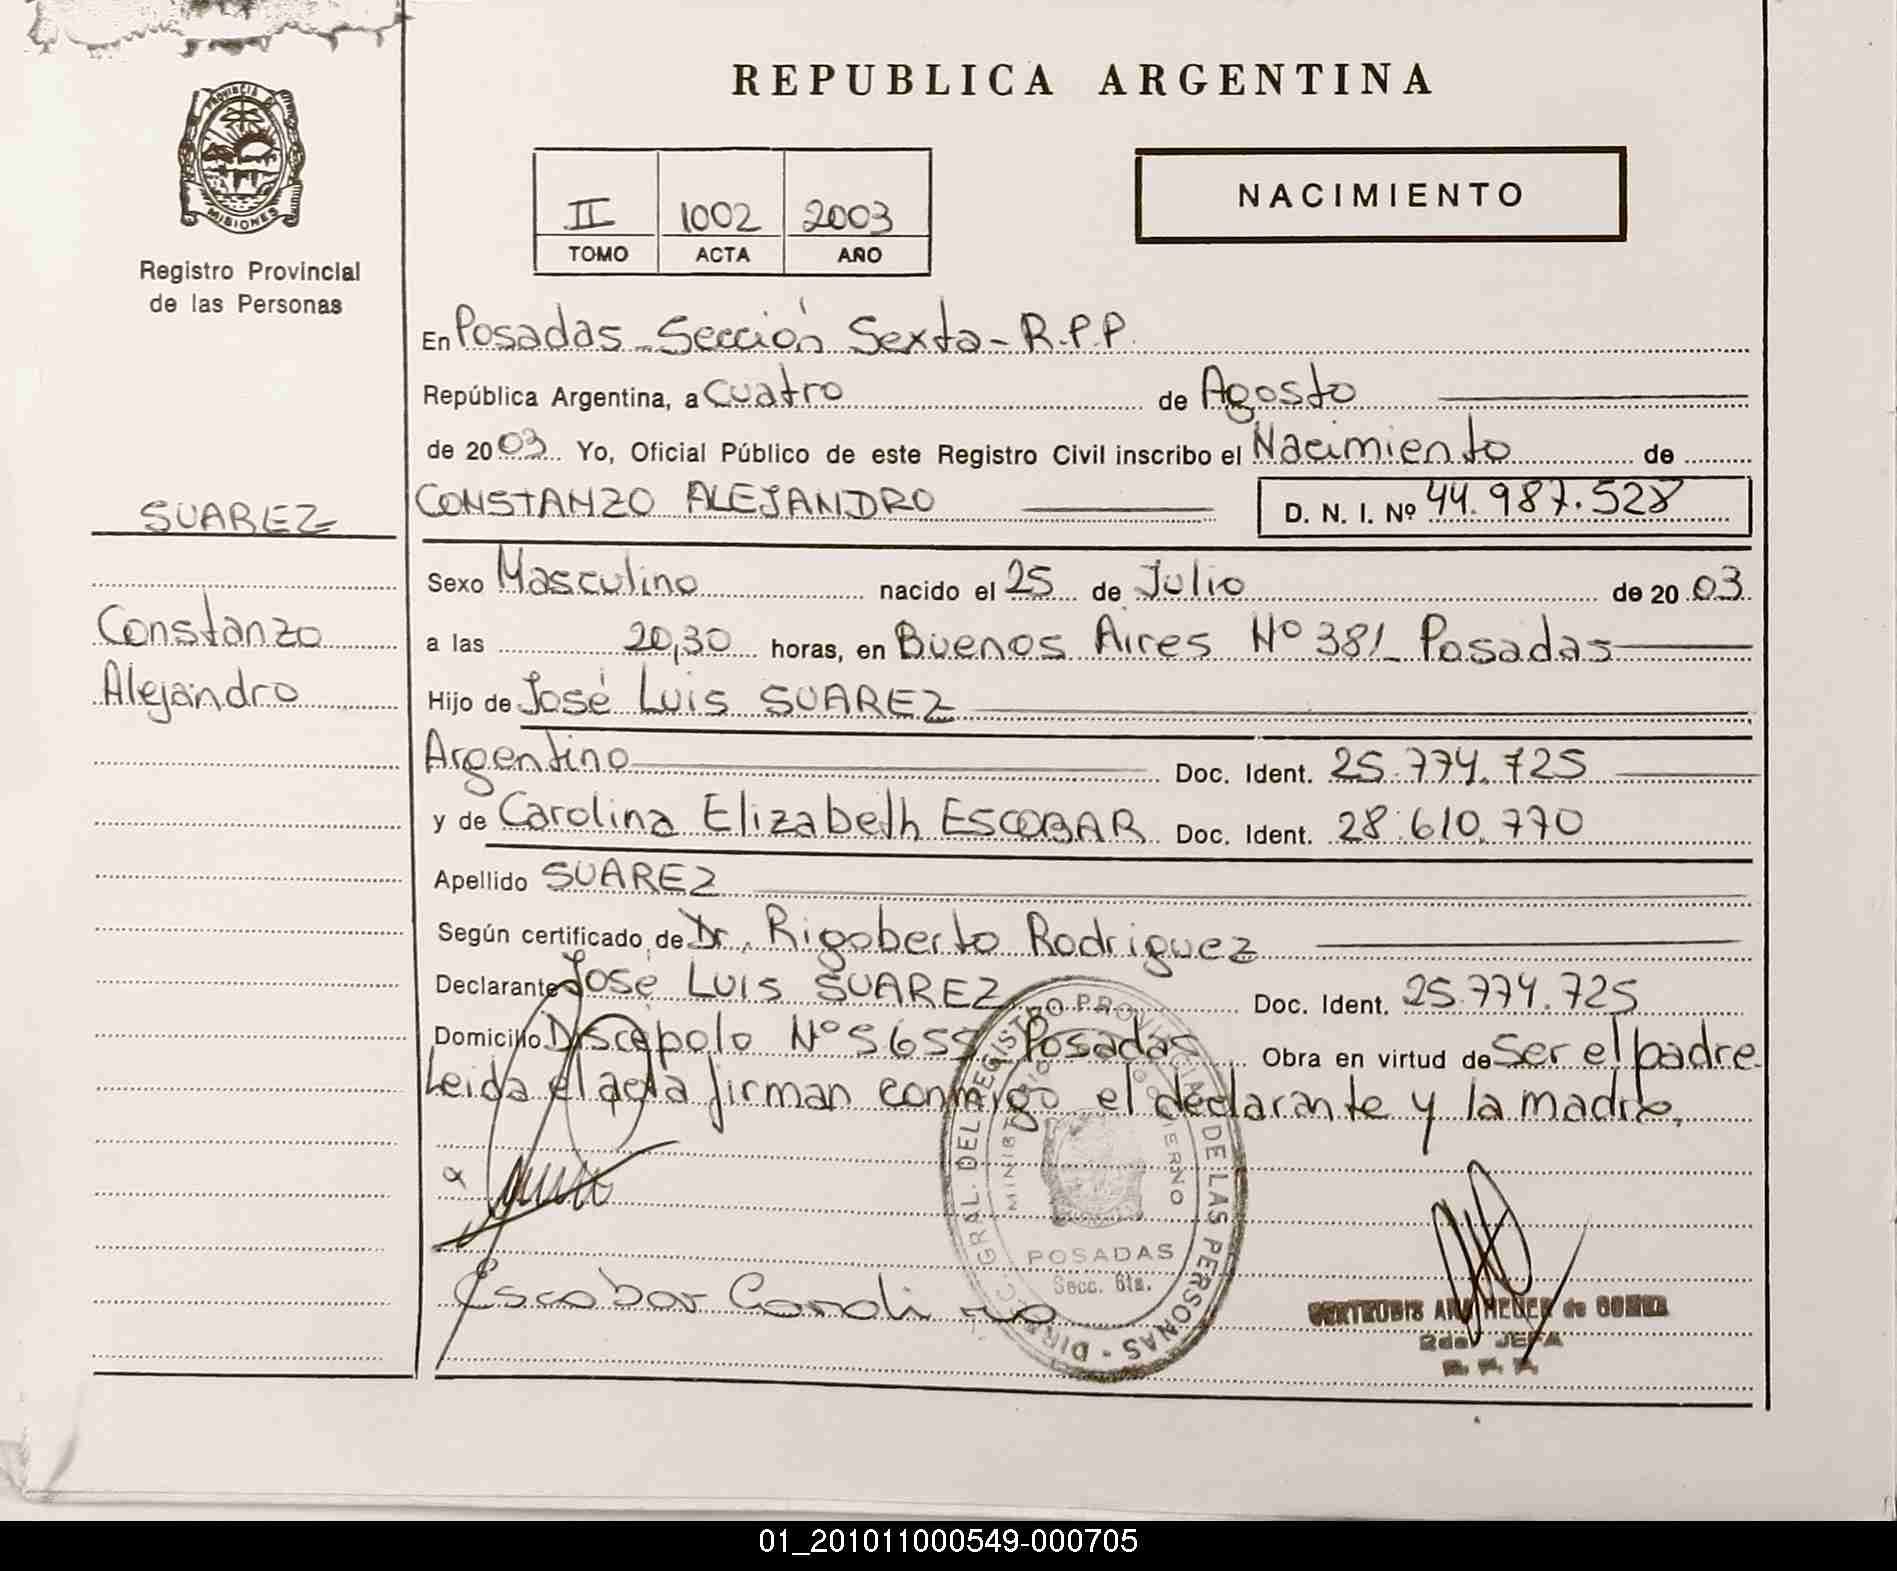 REPUBLICA ARGENTINA
PROVINCIA DE
MISIONES
Registro Provincial
de las Personas
II 1002 2003
TOMO ACTA AÑO
NACIMIENTO
En Posadas - Sección Sexta - R.P.P.
República Argentina, a Cuatro de Agosto
de 2003 Yo, Oficial Público de este Registro Civil inscribo el Nacimiento de
CONSTANZO ALEJANDRO D. N. I. Nº 44.987.528
SUAREZ
Constanzo
Alejandro
Sexo Masculino nacido el 25 de Julio de 2003
a las 20,30 horas, en Buenos Aires Nº 381 Posadas
Hijo de José Luis SUAREZ
Argentino Doc. Ident. 25.774.725
y de Carolina Elizabeth ESCOBAR Doc. Ident. 28.610.770
Apellido SUAREZ
Según certificado de Dr. Rigoberto Rodriguez
Declarante José Luis SUAREZ Doc. Ident. 25.774.725
Domicilio Discépolo Nº 5655 Posadas Obra en virtud de Ser el padre
Leida el acta firman conmigo el declarante y la madre.
Escobar Carolina
DIREC. GRAL. DEL REGISTRO PROVINCIAL DE LAS PERSONAS
MINISTERIO GOBIERNO
POSADAS
Secc. 6ta.
de
2da JEFA
01_201011000549-000705